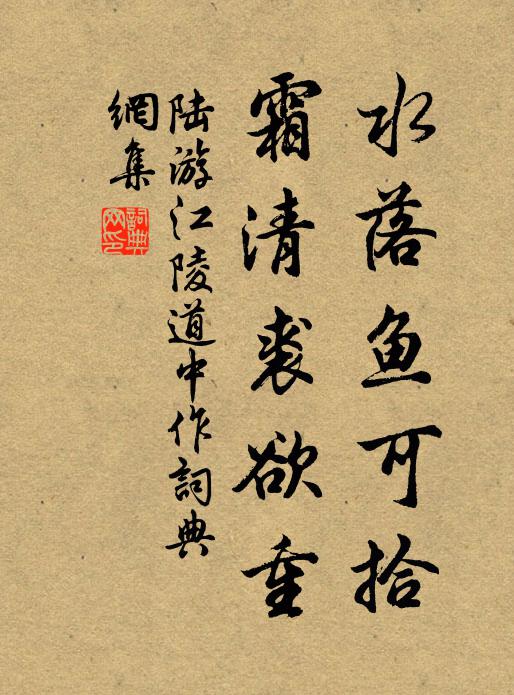 水落鱼可拾
霜清裘欲重
陆游江陵道中作詞典
網集
詞典
网印